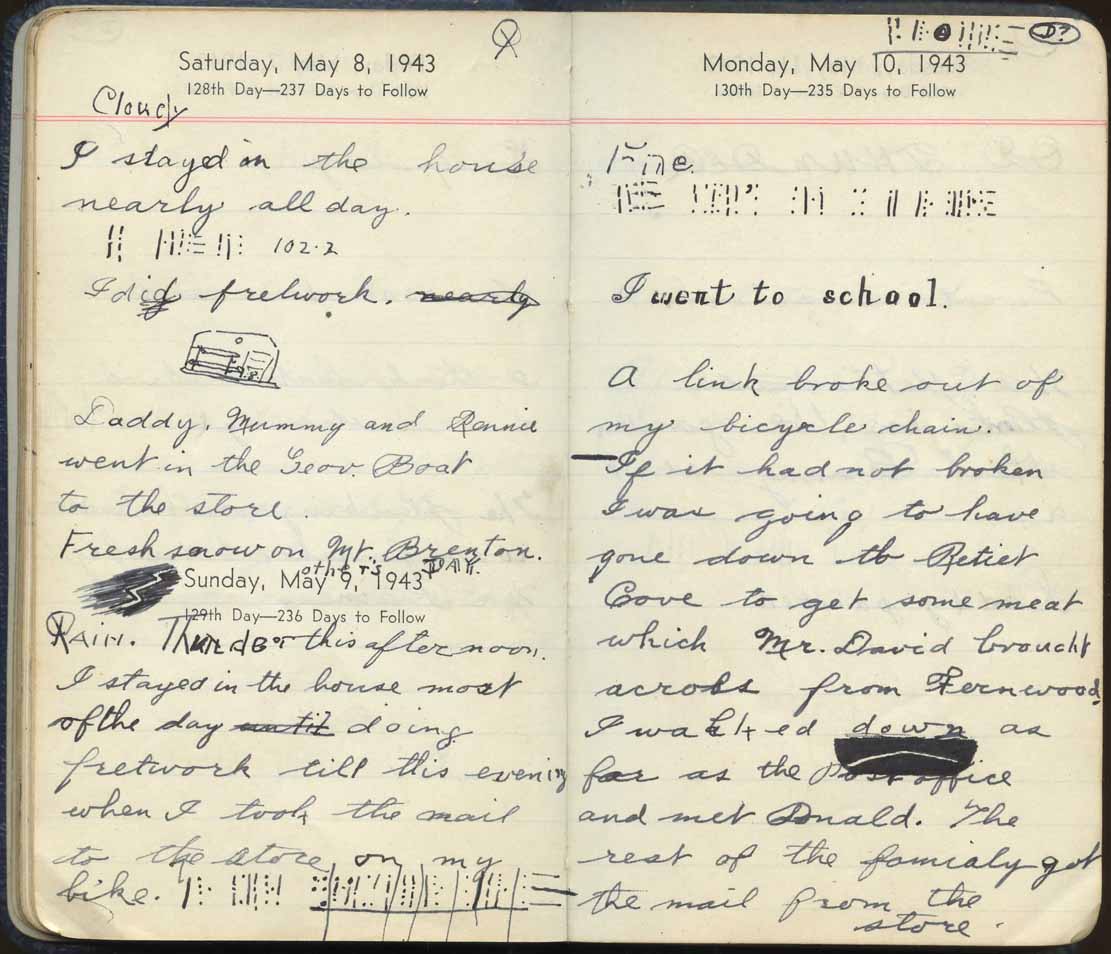 Saturday, May 8, 1943
128th Day—237 Days to Follow
Cloudy
I stayed in the house
nearly all day.
102.2
I did fretwork. nearly
Daddy, Mummy and
went in the Gov. Boat
to the store.
Fresh snow on Mt. Brenton.
others DAY.
Sunday, May 9, 1943
129th Day—236 Days to Follow
RAIN. Thunder this afternoon.
I stayed in the house most
of the day until doing
fretwork till this evening
when I took the mail
to the store on my
bike.
D?
Monday, May 10, 1943
130th Day—235 Days to Follow
Fine.
I went to school.
A link broke out of
my bicycle chain.
If it had not broken
I was going to have
gone down to Retiet
Cove to get some meat
which Mr. David brought
across from Fernwood.
I walked down as
far as the Post office
and met Donald. The
rest of the famialy got
the mail from the
store.